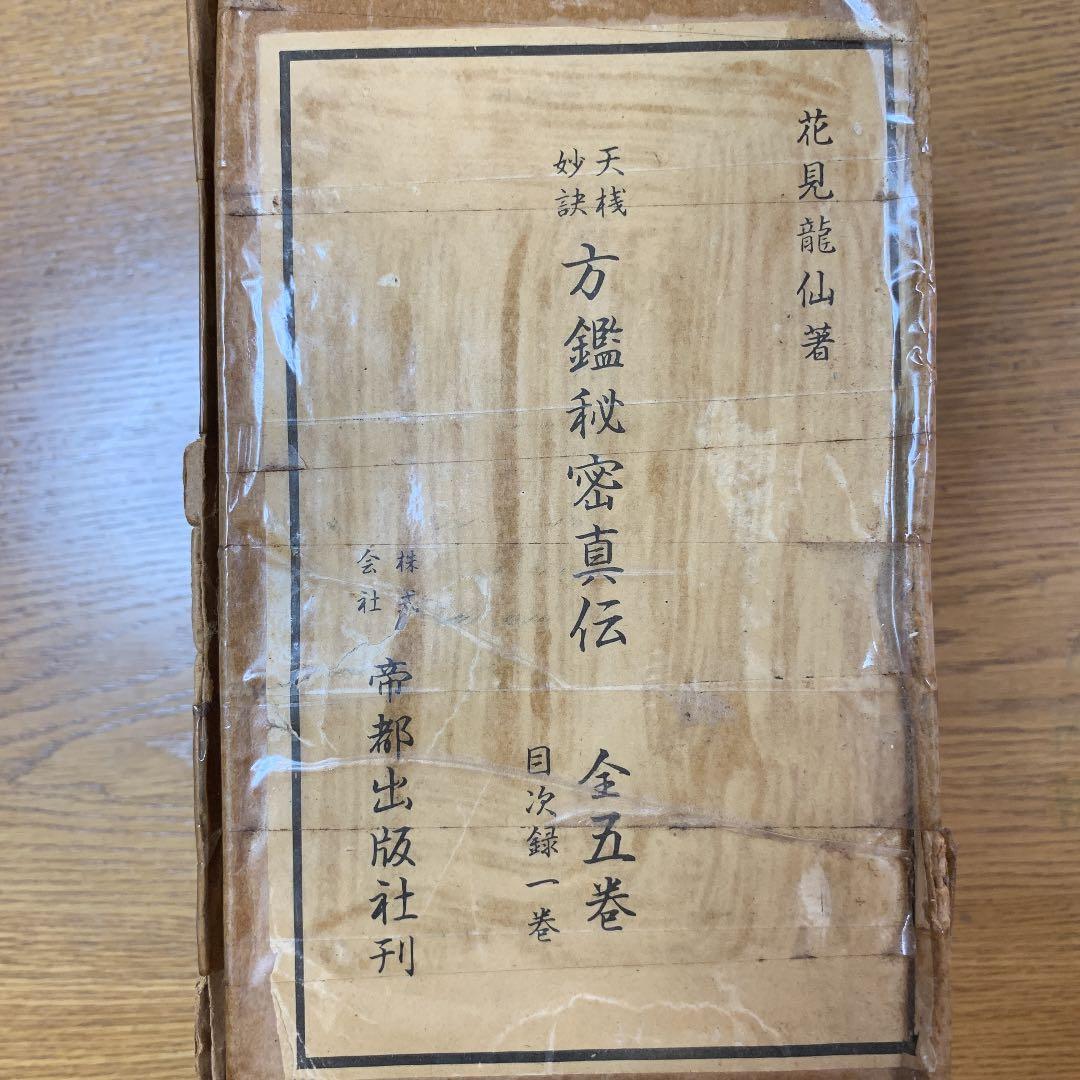 花見龍仙著
天桟
妙訣
方鑑秘密真伝
全五巻
目次録一巻
株式
会社
帝都出版社刊